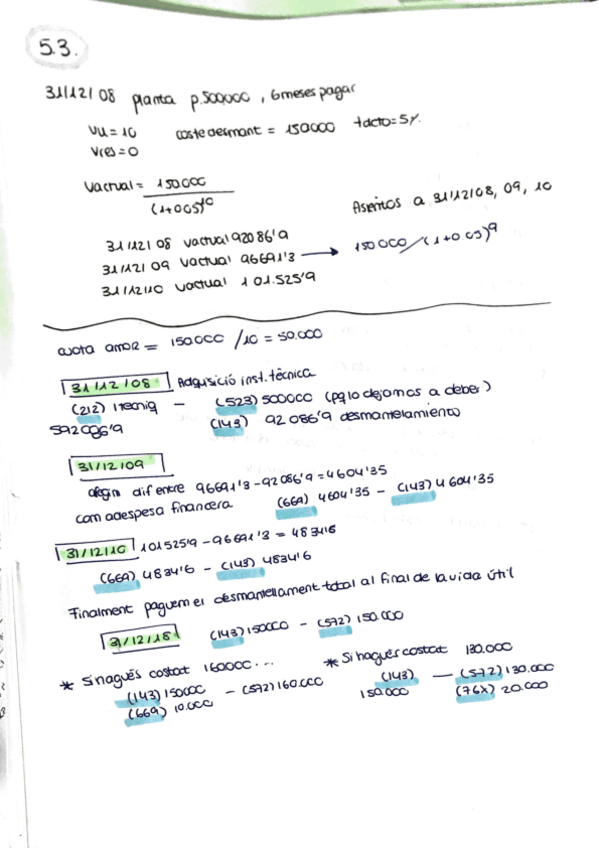 5.3.
31/12/08 planta p.500000, 6 meses pagar
VU = 10 coste desmant = 150000 tdcto = 5%
Vres = 0
Vactual = 150.000
(1+0'05)^10
Asientos a 31/12/08, 09, 10
31/12/08 Vactual 92086'9
31/12/09 Vactual 96691'3 → 150000/(1+0.05)^9
31/12/10 Vactual 101.525'9
cuota amor = 150.000 /10 = 50.000
31/12/08 Adquisició inst. tècnica
(212) — (523) 500000 (pq lo dejamos a deber)
592086'9 (143) 92086'9 desmantelamiento
31/12/09
dif entre 96691'3 - 92086'9 = 4604'35
com a despesa financera (669) 4604'35 - (143) 4604'35
31/12/10 101525'9 - 96691'3 = 4834'6
(669) 4834'6 - (143) 4834'6
Finalment paguem el desmantellament total al final de la vida útil
31/12/18 (143) 150000 - (572) 150.000
* Si hagués costat 160000... * Si hagués costat 130.000
(143) 150000 - (572) 160.000 (143) — (572) 130.000
(669) 10.000 150.000 (76X) 20.000